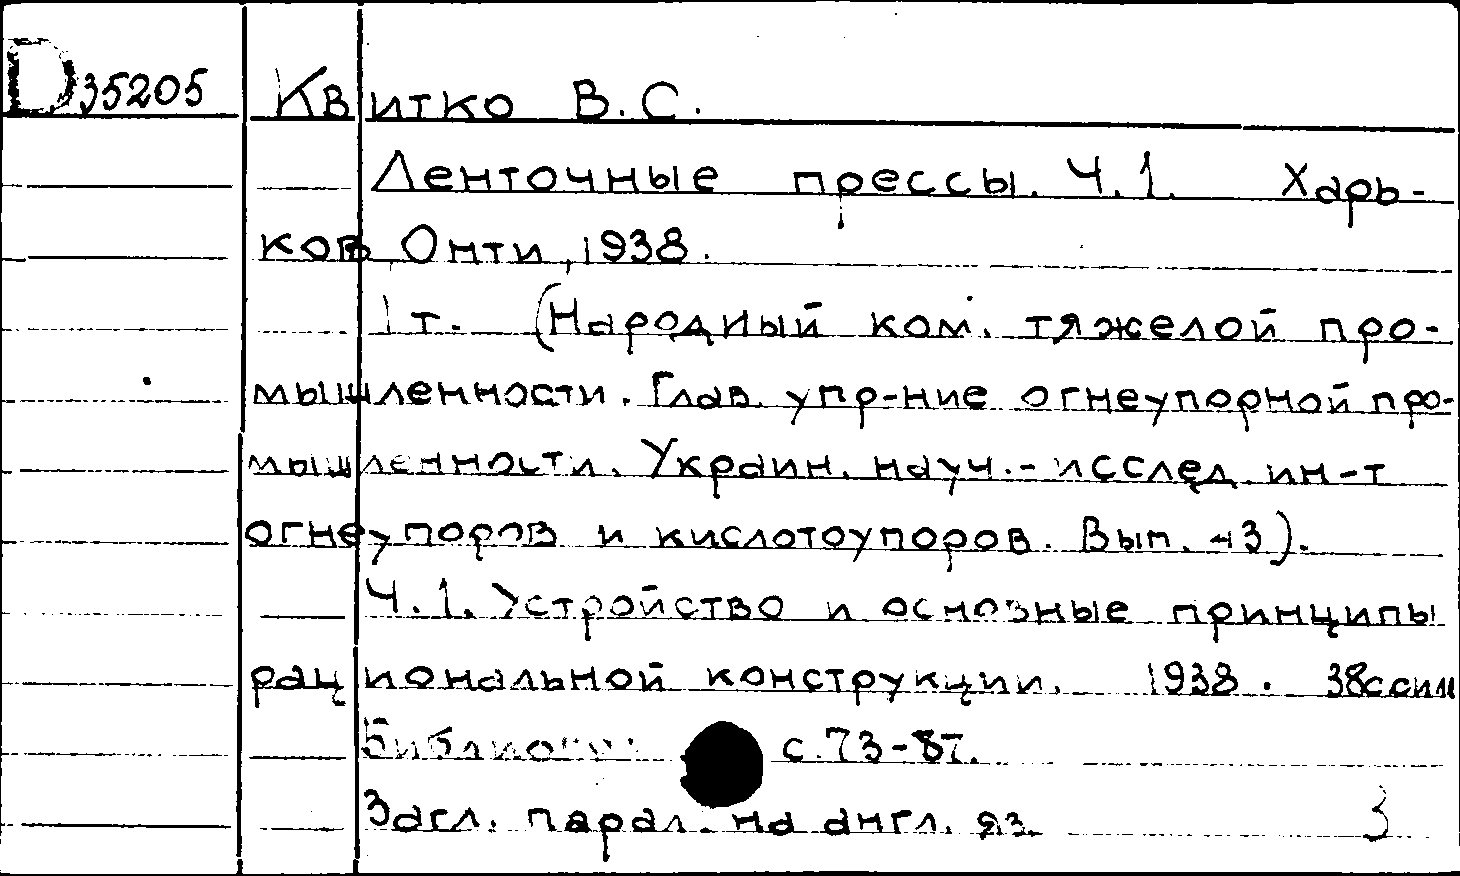 D35205 Квитко В.С.
Ленточные прессы. Ч.1. Харь-
ков, Онти, 1938.
1 т. (Народный ком. тяжелой про-
мышленности. Глав. упр-ние огнеупорной про-
мышленности. Украин. науч.-исслед. ин-т
огнеупоров и кислотоупоров. Вып. 43).
Ч.1. Устройство и основные принципы
рациональной конструкции. 1938. с илл
Библиогр: с.73-87.
Загл. парал. на англ. яз. 3